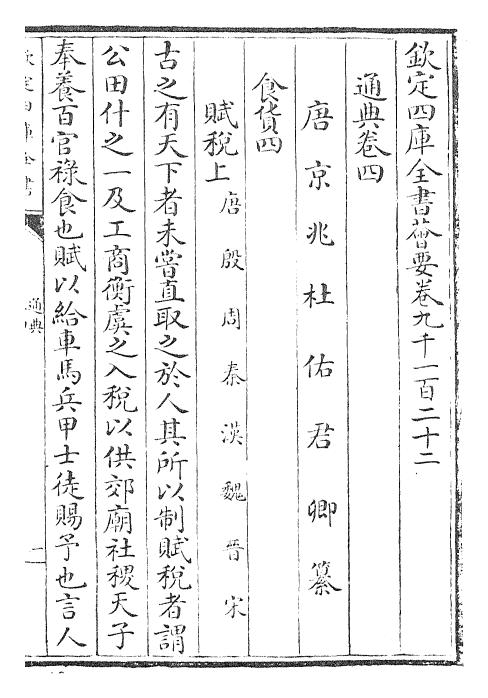 欽定四庫全書薈要卷九千一百二十二
通典卷四
唐京兆杜佑君卿纂
食貨四
賦稅上 唐 殷 周 秦 漢 魏 晉 宋
古之有天下者未嘗直取之於人其所以制賦稅者謂
公田什之一及工商衡虞之入稅以供郊廟社稷天子
奉養百官祿食也賦以給車馬兵甲士徒賜予也言人
欽定四庫全書
通典